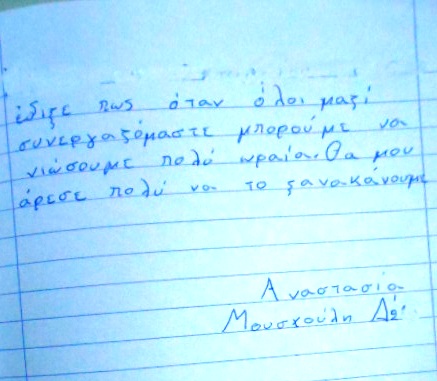 έδιξε πως όταν όλοι μαζί
συνεργαζόμαστε μπορούμε να
νιώσουμε πολύ ωραία. Θα μου
άρεσε πολύ να το ξανακάνουμε
Αναστασία
Μουσχούλη